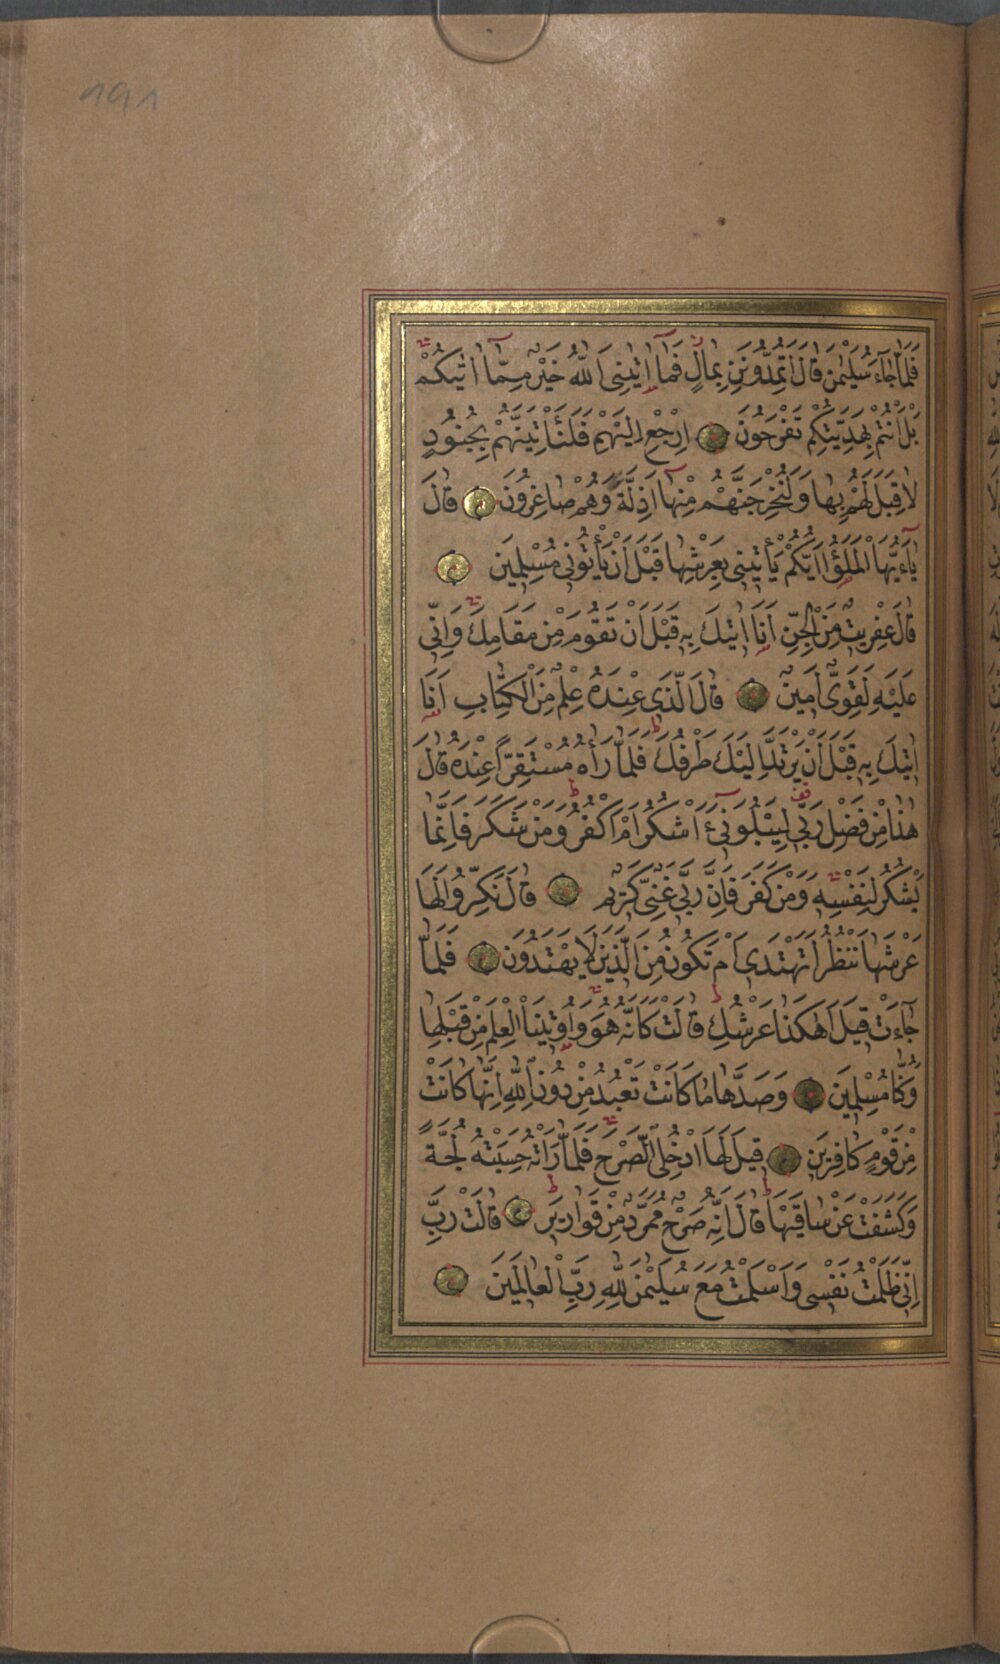 191
فَلَمَّا جَٓاءَ سُلَيْمٰنَ قَالَ اَتُمِدُّونَنِ بِمَالٍ فَمَٓا اٰتٰينِىَ اللّٰهُ خَيْرٌ مِمَّٓا اٰتٰيكُمْ
بَلْ اَنْتُمْ بِهَدِيَّتِكُمْ تَفْرَحُونَ اِرْجِعْ اِلَيْهِمْ فَلَنَأْتِيَنَّهُمْ بِجُنُودٍ
لَا قِبَلَ لَهُمْ بِهَا وَلَنُخْرِجَنَّهُمْ مِنْهَٓا اَذِلَّةً وَهُمْ صَاغِرُونَ قَالَ
يَٓا اَيُّهَا الْمَلَؤُا اَيُّكُمْ يَأْتٖينٖى بِعَرْشِهَا قَبْلَ اَنْ يَأْتُونٖى مُسْلِمٖينَ
قَالَ عِفْرٖيتٌ مِنَ الْجِنِّ اَنَا اٰتٖيكَ بِهٖ قَبْلَ اَنْ تَقُومَ مِنْ مَقَامِكَ وَاِنّٖى
عَلَيْهِ لَقَوِىٌّ اَمٖينٌ قَالَ الَّذٖى عِنْدَهُ عِلْمٌ مِنَ الْكِتَابِ اَنَا
اٰتٖيكَ بِهٖ قَبْلَ اَنْ يَرْتَدَّ اِلَيْكَ طَرْفُكَ فَلَمَّا رَاٰهُ مُسْتَقِرًّا عِنْدَهُ قَالَ
هٰذَا مِنْ فَضْلِ رَبّٖى لِيَبْلُوَنٖٓى ءَاَشْكُرُ اَمْ اَكْفُرُ وَمَنْ شَكَرَ فَاِنَّمَا
يَشْكُرُ لِنَفْسِهٖ وَمَنْ كَفَرَ فَاِنَّ رَبّٖى غَنِىٌّ كَرٖيمٌ قَالَ نَكِّرُوا لَهَا
عَرْشَهَا نَنْظُرْ اَتَهْتَدٖى اَمْ تَكُونُ مِنَ الَّذٖينَ لَا يَهْتَدُونَ فَلَمَّا
جَٓاءَتْ قٖيلَ اَهٰكَذَا عَرْشُكِ قَالَتْ كَاَنَّهُ هُوَ وَاُوتٖينَا الْعِلْمَ مِنْ قَبْلِهَا
وَكُنَّا مُسْلِمٖينَ وَصَدَّهَا مَا كَانَتْ تَعْبُدُ مِنْ دُونِ اللّٰهِ اِنَّهَا كَانَتْ
مِنْ قَوْمٍ كَافِرٖينَ قٖيلَ لَهَا ادْخُلِى الصَّرْحَ فَلَمَّا رَاَتْهُ حَسِبَتْهُ لُجَّةً
وَكَشَفَتْ عَنْ سَاقَيْهَا قَالَ اِنَّهُ صَرْحٌ مُمَرَّدٌ مِنْ قَوَارٖيرَ قَالَتْ رَبِّ
اِنّٖى ظَلَمْتُ نَفْسٖى وَاَسْلَمْتُ مَعَ سُلَيْمٰنَ لِلّٰهِ رَبِّ الْعَالَمٖينَ